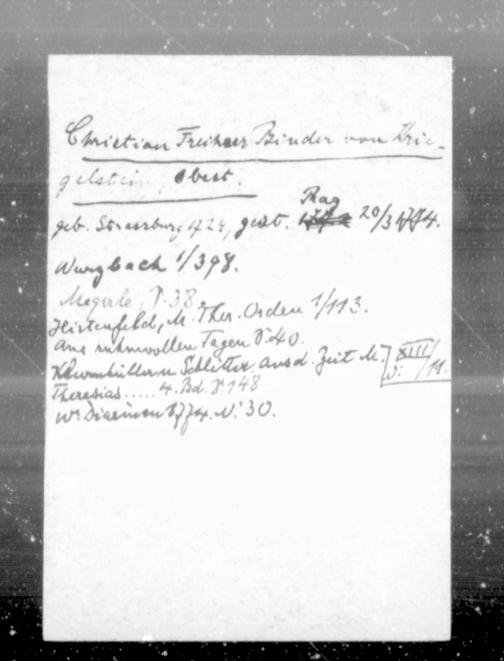 Christian Freiherr Binder von Krie-
gelstein, Obest.
geb. Strassburg 1724, gest. Prag 20/3 1774.
Wurzbach 1/398.
Megerle, S. 38
Hirtenfeld, M. Ther. Orden 1/113.
Aus ruhmvollen Tagen S. 40.
Khevenhüller u Schlitter, aus d. Zeit M. XIII/
Theresias..... 4. Bd. S. 148 v: /11.
Wr Diarium 1774. Nº 30.